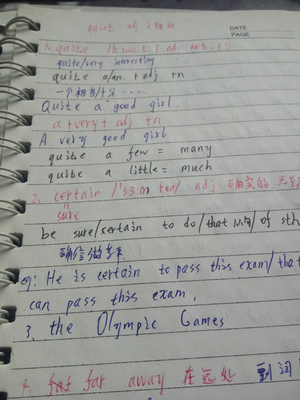 quiet adj 安静的
DATE
PAGE
1. quite adv
quite/very interesting
quite a/an + adj + n
一个相当/十分……
Quite a good girl
a + very + adj + n
A very good girl
quite a few = many
quite a little = much
2. certain /'sɜ:tən/ adj 确实的
sure
be sure/certain to do/that 从句/of sth
确信做某事
eg: He is certain to pass this exam/that
can pass this exam.
3. the Olympic Games
4. far away 在远处